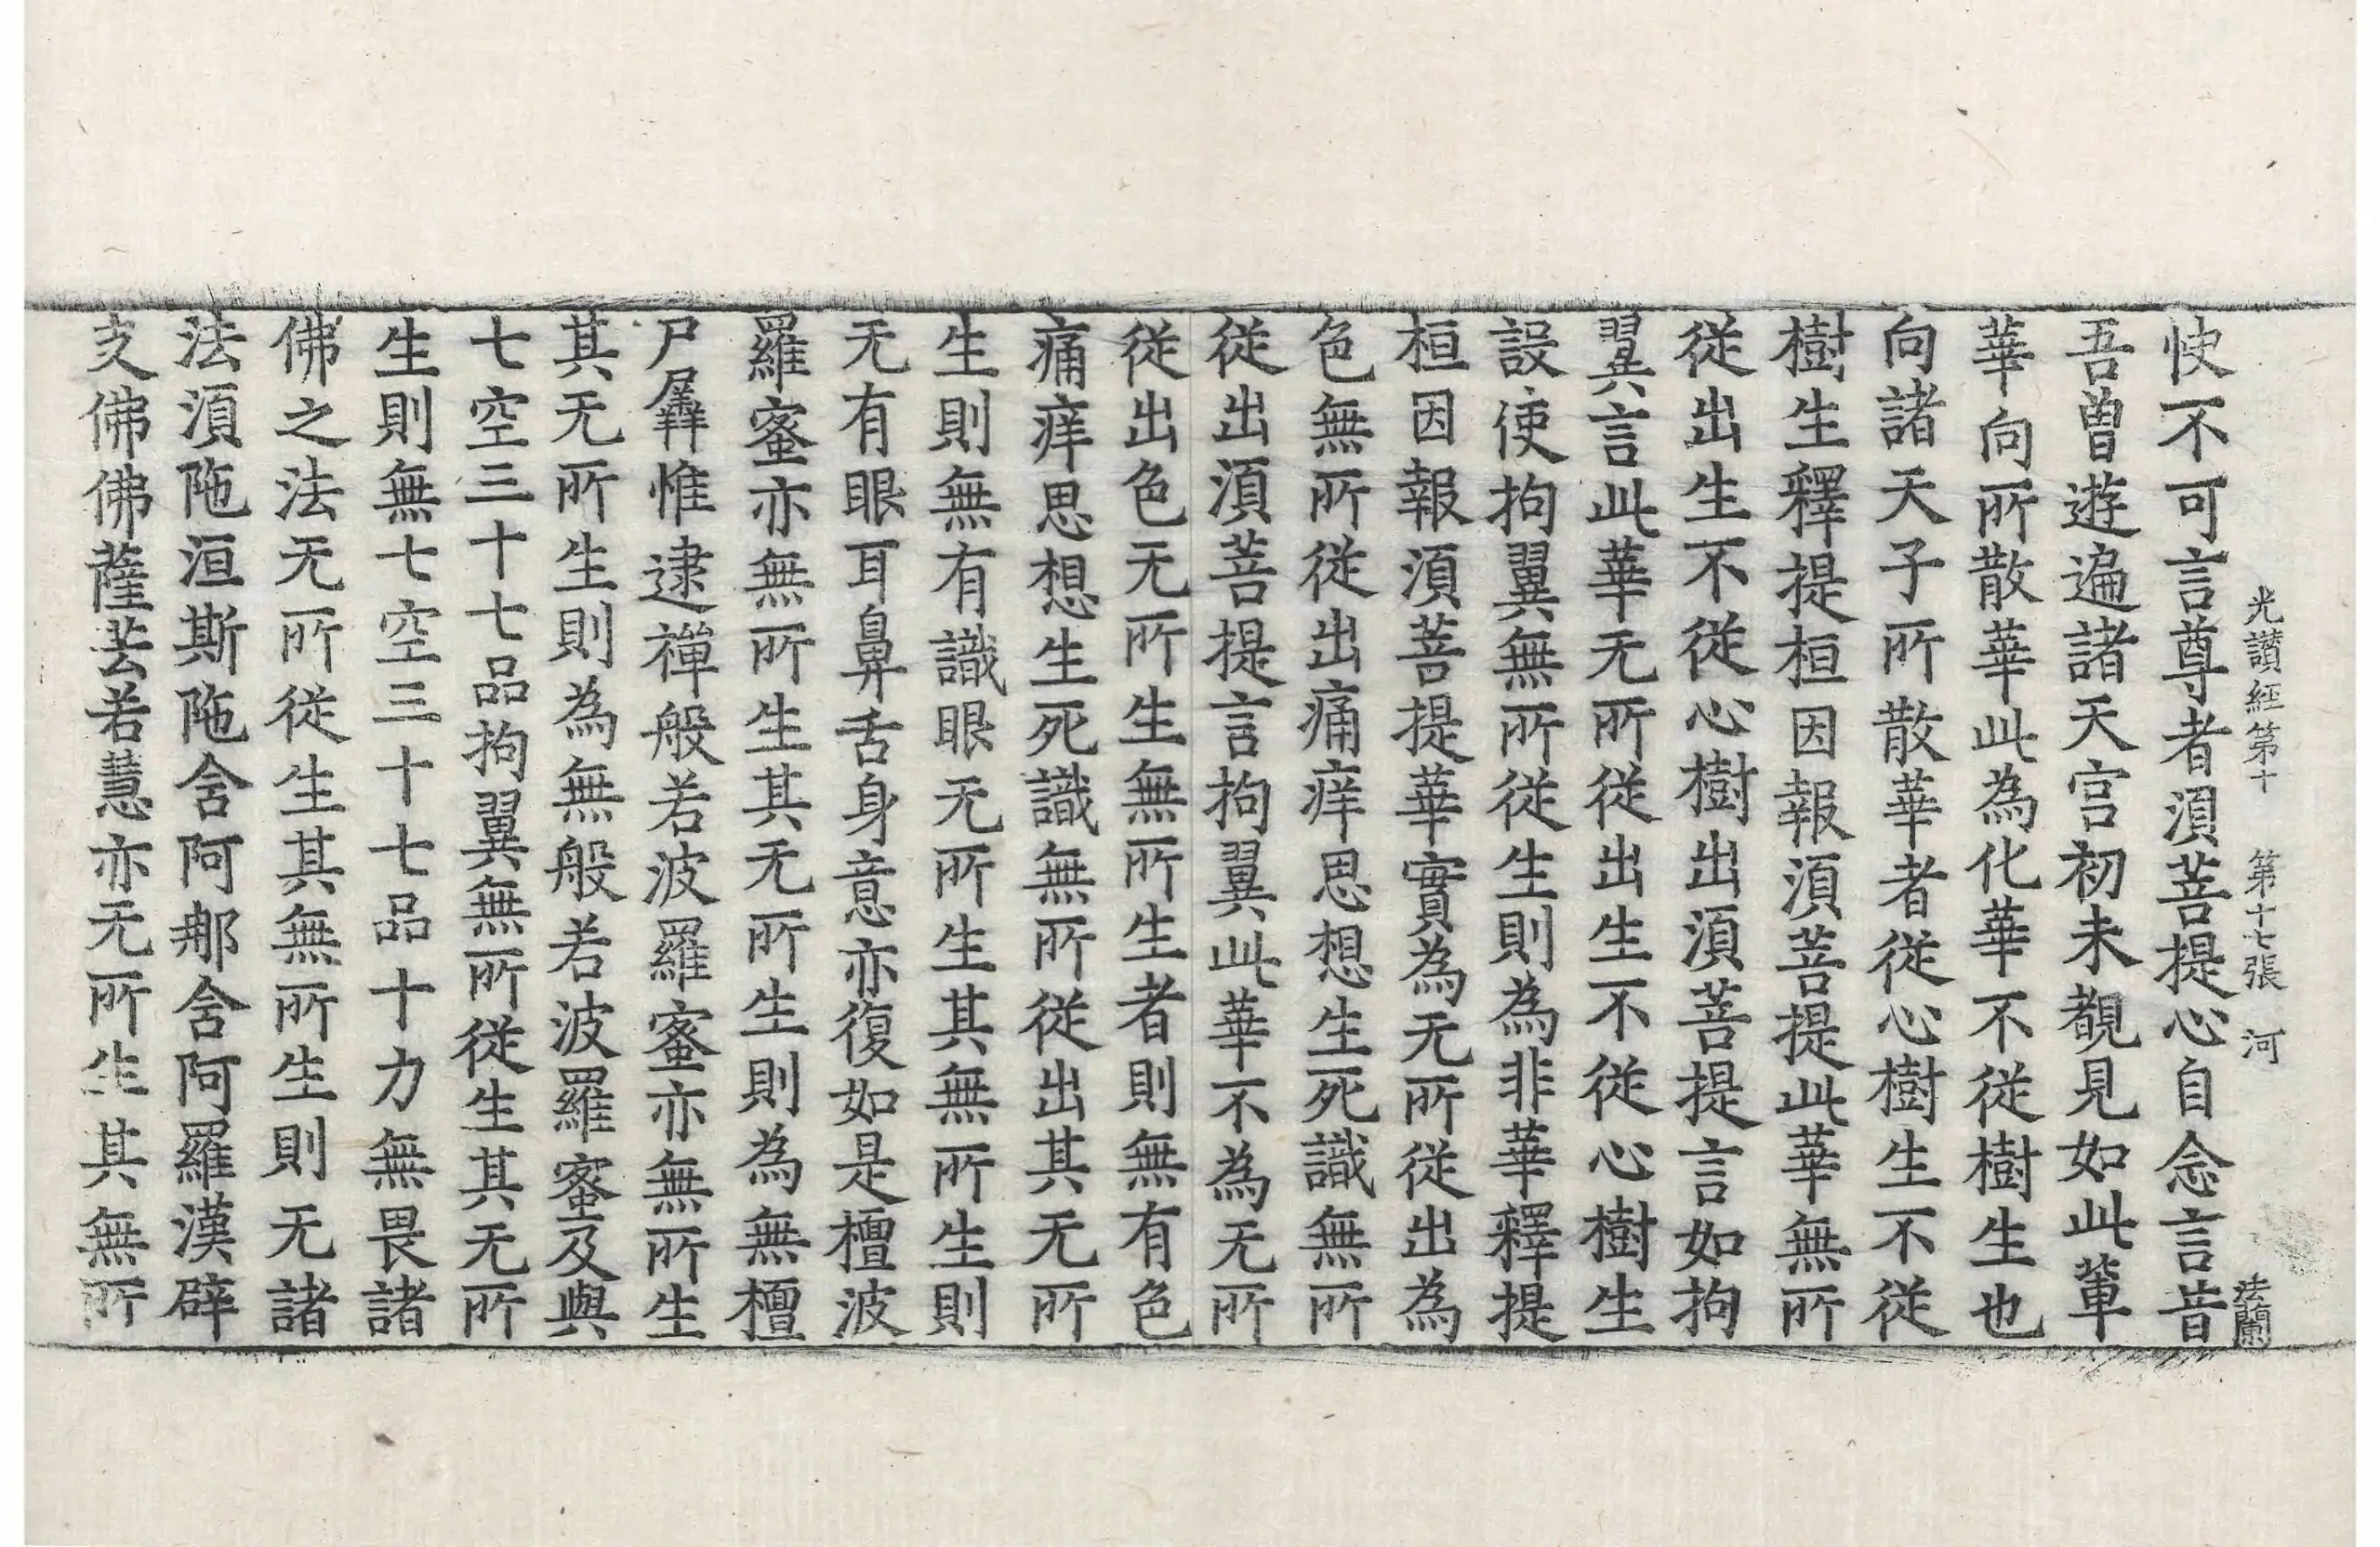 光讃経第十　第十七張　河　法蘭
快不可言尊者湏菩提心自念言昔
吾曽遊遍諸天宫初未覩見如此輩
華向所散華此為化華不從樹生也
向諸天子所散華者從心樹生不從
樹生釋提桓因報湏菩提此華無所
從出生不從心樹出湏菩提言如拘
翼言此華无所從出生不從心樹生
設使拘翼無所從生則為非華釋提
桓因報湏菩提華實為无所從出為
色無所從出痛痒思想生死識無所
從出湏菩提言拘翼此華不為无所
從出色无所生無所生者則無有色
痛痒思想生死識無所從出其无所
生則無有識眼无所生其無所生則
无有眼耳鼻舌身意亦復如是檀波
羅蜜亦無所生其无所生則為無檀
尸羼惟逮禪般若波羅蜜亦無所生
其无所生則為無般若波羅蜜及與
七空三十七品拘翼無所從生其无所
生則無七空三十七品十力無畏諸
佛之法无所從生其無所生則无諸
法湏陁洹斯陁舍阿那舍阿羅漢辟
支佛佛薩芸若慧亦无所生其無所